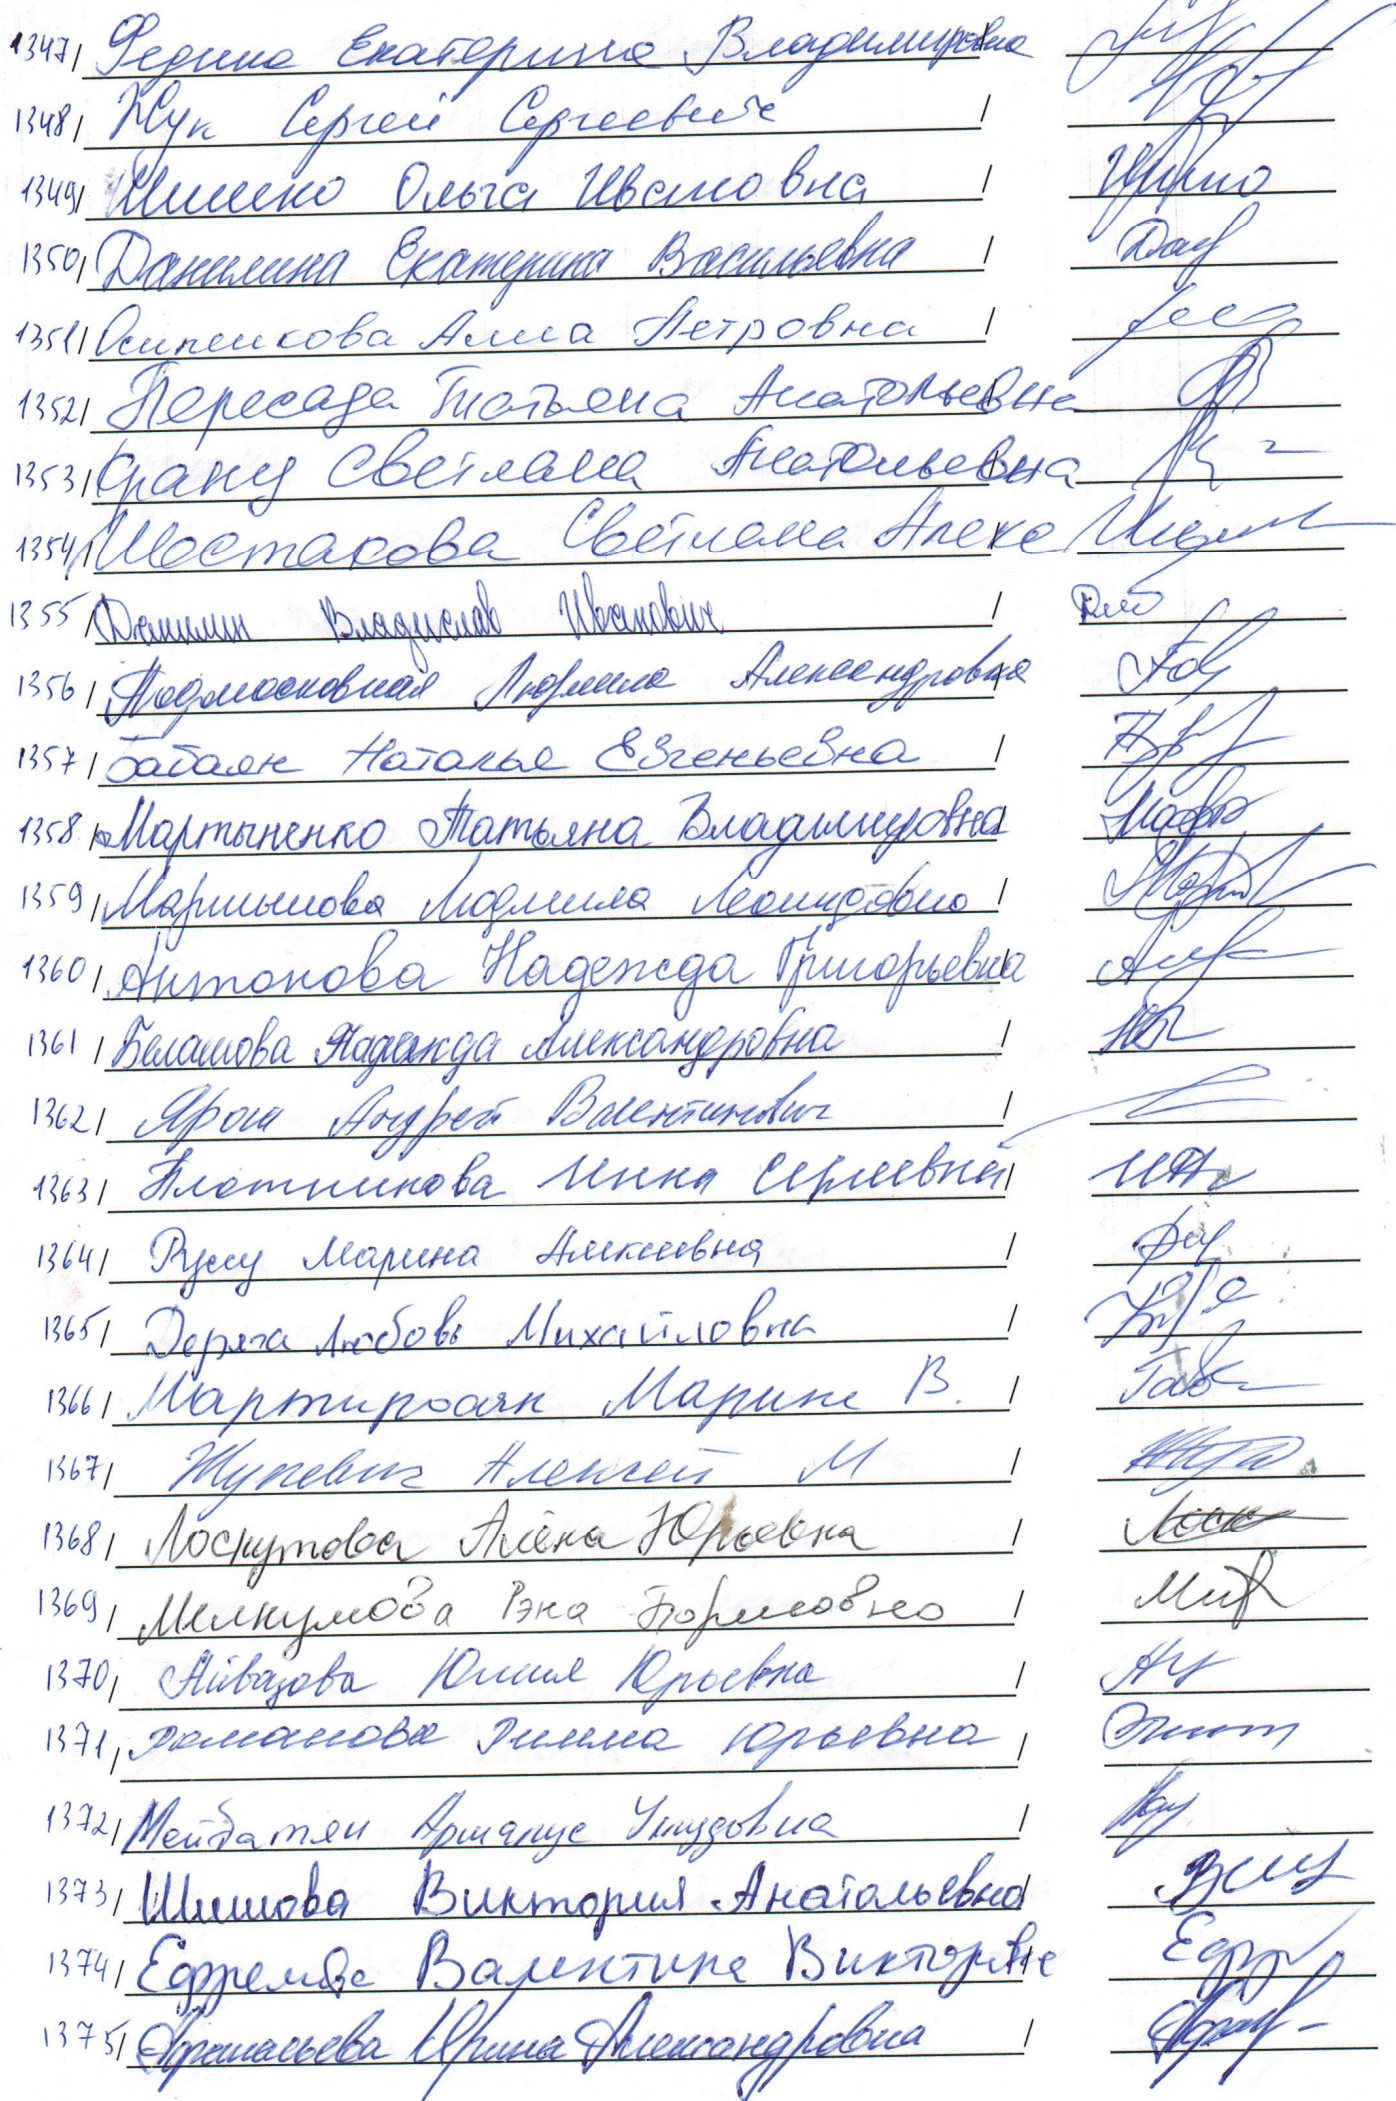 1347/ Федина Екатерина Владимировна
1348/ Жук Сергей Сергеевич /
1349/ Шишко Ольга Ивановна /
1350/ Данилина Екатерина Васильевна /
1351/ Осипенкова Алла Петровна /
1352/ Пересада Татьяна Анатольевна
1353/ Франц Светлана Анатольевна
1354/ Шостакова Светлана Алекс
1355/ Данилин Владислав Иванович /
1356/ Подмосковная Людмила Александровна
1357/ Бабаян Наталья Евгеньевна /
1358/ Мартыненко Татьяна Владимировна /
1359/ Мартынова Людмила Леонидовна /
1360/ Антонова Надежда Григорьевна
1361/ Белашова Надежда Александровна /
1362/ Ярош Андрей Валентинович /
1363/ Плотникова Инна Сергеевна /
1364/ Руссу Марина Алексеевна /
1365/ Деряга Любовь Михайловна /
1366/ Мартиросян Марине В. /
1367/ Жукевич Алексей М /
1368/ Лоскутова Алёна Юрьевна /
1369/ Мелкумова Рэна Борисовна /
1370/ Айвазова Юлия Юрьевна /
1371/ Романова Римма Юрьевна /
1372/
1373/ Шишова Виктория Анатольевна /
1374/ Ефремова Валентина Викторовна
1375/ Афанасьева Ирина Александровна /